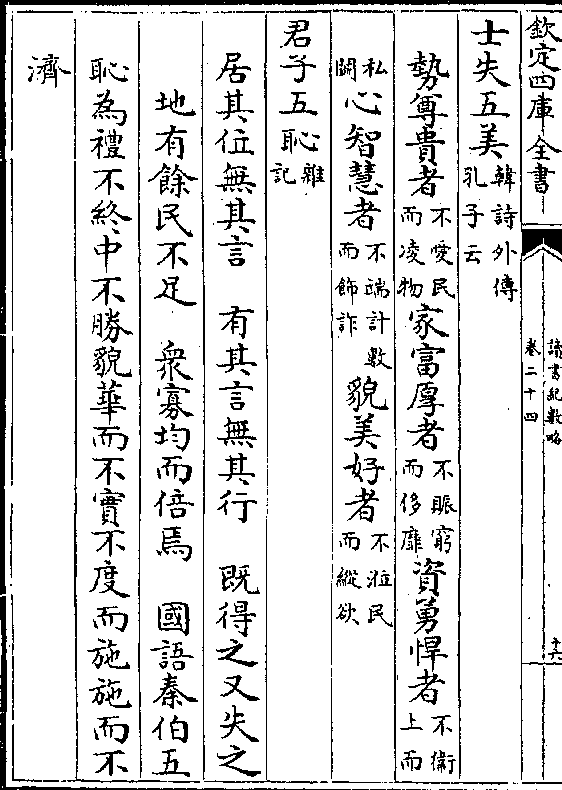 欽定四庫全書
讀書紀數略
卷二十四
十六
士失五美韓詩外傳孔子云
勢尊貴者不愛民而凌物家富厚者不賑窮而侈靡資勇悍者不衛上而
私鬭心智慧者不端計數而飾詐貌美好者不涖民而縱欲
君子五恥雜記
居其位無其言 有其言無其行 既得之又失之
地有餘民不足 衆寡均而倍焉 國語秦伯五
恥為禮不終中不勝貌華而不實不度而施施而不
濟